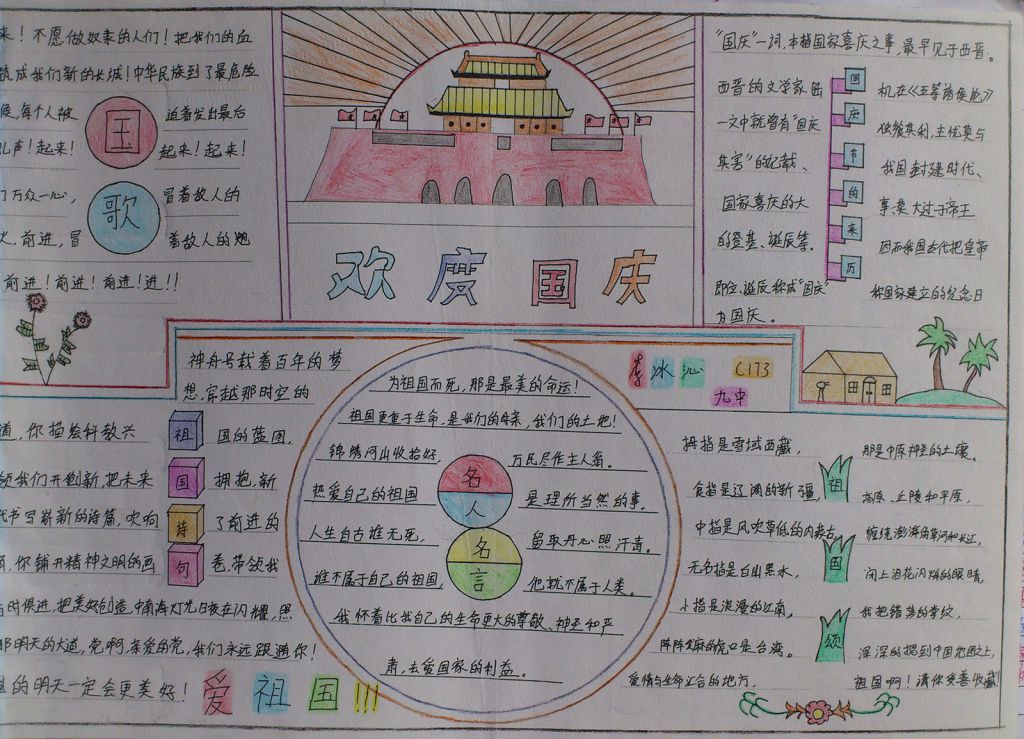 来！不愿做奴隶的人们！把我们的血
筑成我们新的长城！中华民族到了最危险
候，每个人被 迫着发出最后
吼声！起来！ 起来！起来！
国歌
万众一心， 冒着敌人的
火，前进，冒 着敌人的炮
前进！前进！前进！进！！
欢度国庆
"国庆"一词，本指国家喜庆之事，最早见于西晋。
西晋的文学家陆 机在《五等诸侯论》
一文中就曾有"国庆 独飨其利，主忧莫与
其害"的记载、 我国封建时代、
国家喜庆的大 事，莫大过于帝王
的登基、诞辰等。 因而我国古代把皇帝
即位、诞辰称成"国庆" 称国家建立的纪念日
为国庆。
国庆节的来历
神舟号载着百年的梦
想，穿越那时空的
道，你描绘科教兴 国的蓝图，
我们开创新，把未来 拥抱，新
书写崭新的诗篇，吹响 了前进的
你铺开精神文明的画 卷，带领我
时俱进，把美好创造，中南海灯光日夜在闪耀，照
那明天的大道，党啊，亲爱的党，我们永远跟随你！
的明天一定会更美好！
祖国诗句
爱祖国!!!
为祖国而死，那是最美的命运！
祖国更重于生命，是我们的母亲，我们的土地！
锦绣河山收拾好， 万民尽作主人翁。
热爱自己的祖国 是理所当然的事。
人生自古谁无死， 留取丹心照汗青。
谁不属于自己的祖国， 他就不属于人类。
我怀着比我自己的生命更大的尊敬、神圣和严
肃，去爱国家的利益。
名人名言
李冰沁 C173
九中
拇指是雪域西藏， 那是中原神圣的土壤。
食指是辽阔的新疆， 高原、丘陵和平原，
中指是风吹草低的内蒙古， 缠绕澎湃的黄河和长江，
无名指是白山黑水， 闪上泪花闪烁的眼睛，
小指是浪漫的江南， 我把错落的掌纹，
口是台湾。 深深的摁到中国地图上，
爱情与生命汇合的地方， 祖国啊！请你妥善收藏！
祖国颂